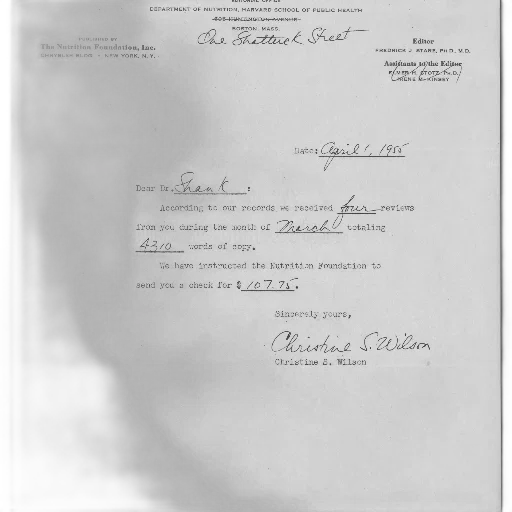 EDITORIAL OFFICE
DEPARTMENT OF NUTRITION, HARVARD SCHOOL OF PUBLIC HEALTH
695 HUNTINGTON AVENUE
BOSTON, MASS.
One Shattuck Street
PUBLISHED BY
The Nutrition Foundation, Inc.
CHRYSLER BLDG · NEW YORK, N.Y.
Editor
FREDRICK J. STARE, PH.D., M.D.
Assistants to the Editor
ELMER H. STOTZ, PH.D.
IRENE McKINSEY
Date: April 1, 1955
Dear Dr. Shank :
According to our records we received four reviews
from you during the month of March totaling
4310 words of copy.
We have instructed the Nutrition Foundation to
send you a check for $ 107.75.
Sincerely yours,
Christine S. Wilson
Christine S. Wilson